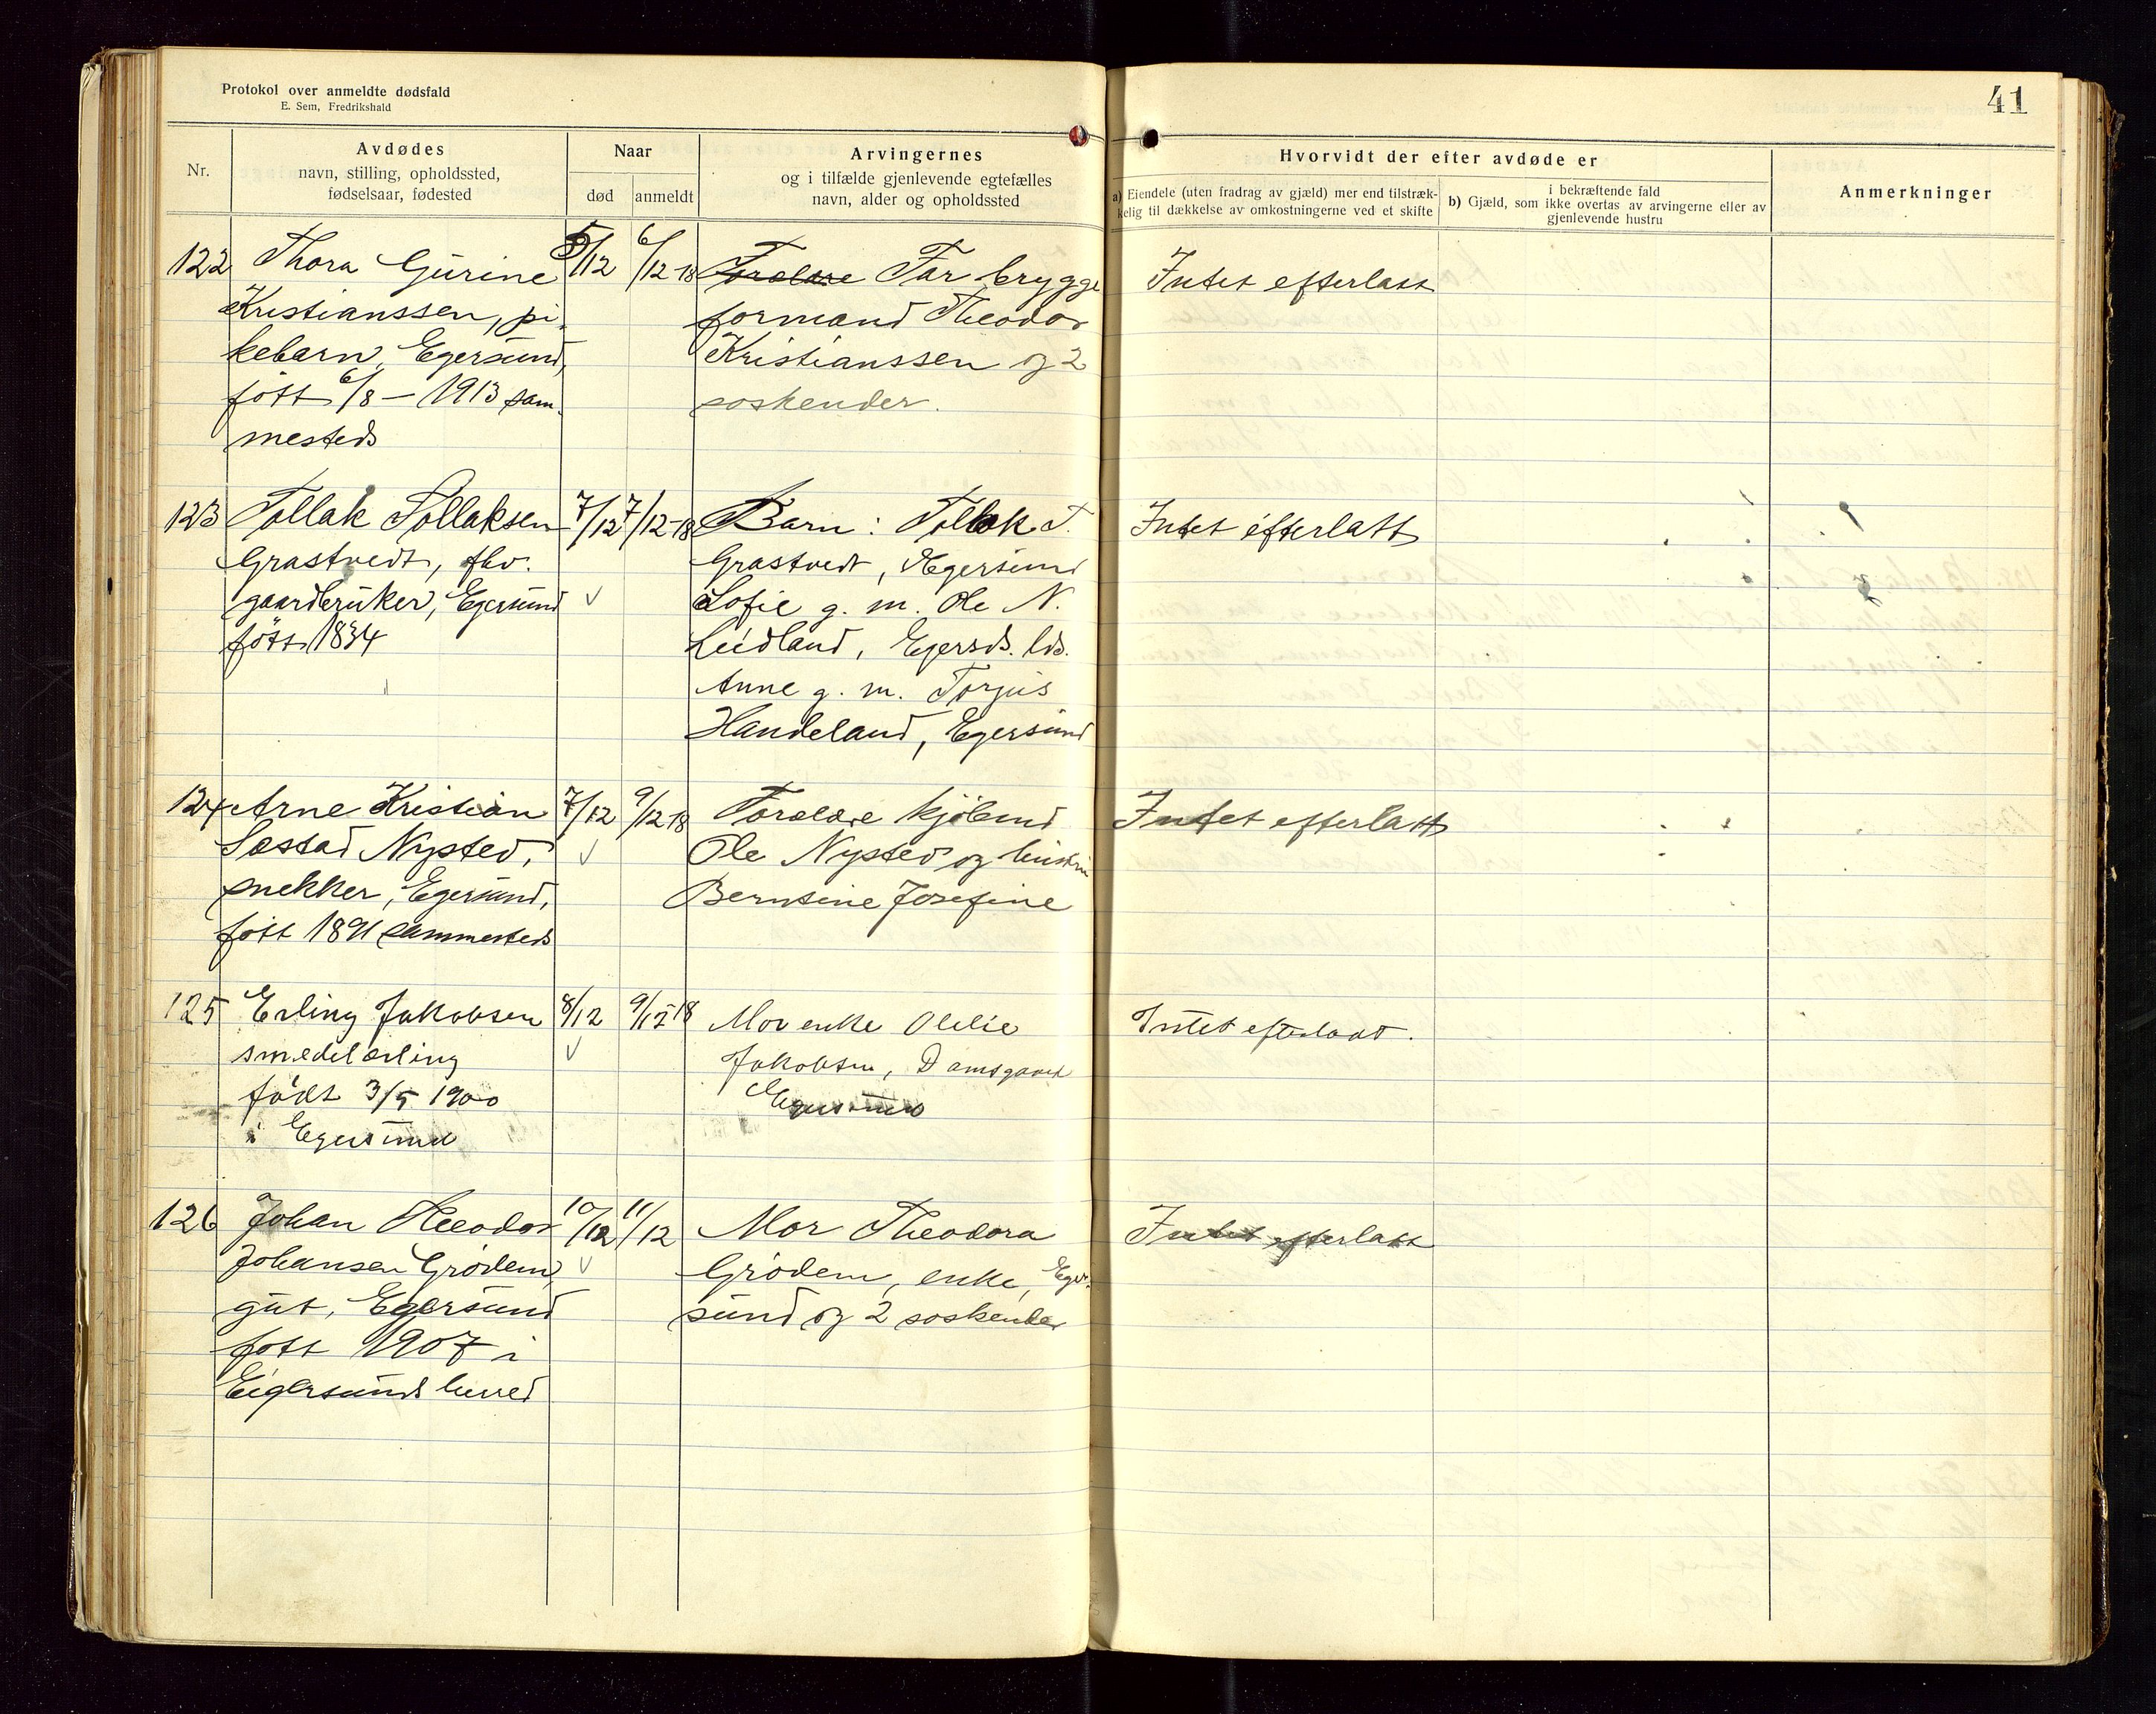 Protokol over anmeldte dødsfald
E. Sem, Fredrikshald
41
Nr.
Avdødes
navn, stilling, opholdssted,
fødselsaar, fødested
Naar
død
anmeldt
Arvingernes
og i tilfælde gjenlevende egtefælles
navn, alder og opholdssted
Hvorvidt der efter avdøde er
a) Eiendele (uten fradrag av gjæld) mer end tilstræk-
kelig til dækkelse av omkostningerne ved et skifte
i bekræftende fald
b) Gjæld, som ikke overtas av arvingerne eller av
gjenlevende hustru
Anmerkninger
122
Thora Gurine
Kristianssen, pi-
kebarn, Egersund,
født 6/8 - 1913 sam-
mesteds
5/12
6/12-18
Forældre Far brygge
formand Theodor
Kristianssen og 2
søskender.
Intet efterlatt
123
Tollak Tollaksen
Grastvedt, fhv.
gaardbruker, Egersund
født 1834
7/12
7/12-18
Barn: Tollak T.
Grastvedt, Egersund
Sofie g. m. Ole N.
Leidland, Egersds. lds.
Anne g. m. Torjus
Handeland, Egersund
Intet efterlatt
124
Arne Kristian
Sæstad Nysted,
snekker, Egersund,
født 1891 sammesteds
7/12
9/12-18
Forældre kjøbmd
Ole Nysted og hustru
Berntine Josefine
Intet efterlatt
125
Erling Jakobsen
smedelærling
født 3/5 1900
i Egersund
8/12
9/12 18
Mor enke Olelie
Jakobsen, Damsgaard
Egersund
Intet efterladt.
126
Johan Theodor
Johansen Grødem,
gut, Egersund
født 1907 i
Eigersunds herred
10/12
11/12
Mor Theodora
Grødem, enke, Eger-
sund og 2 søskender
Intet efterlatt